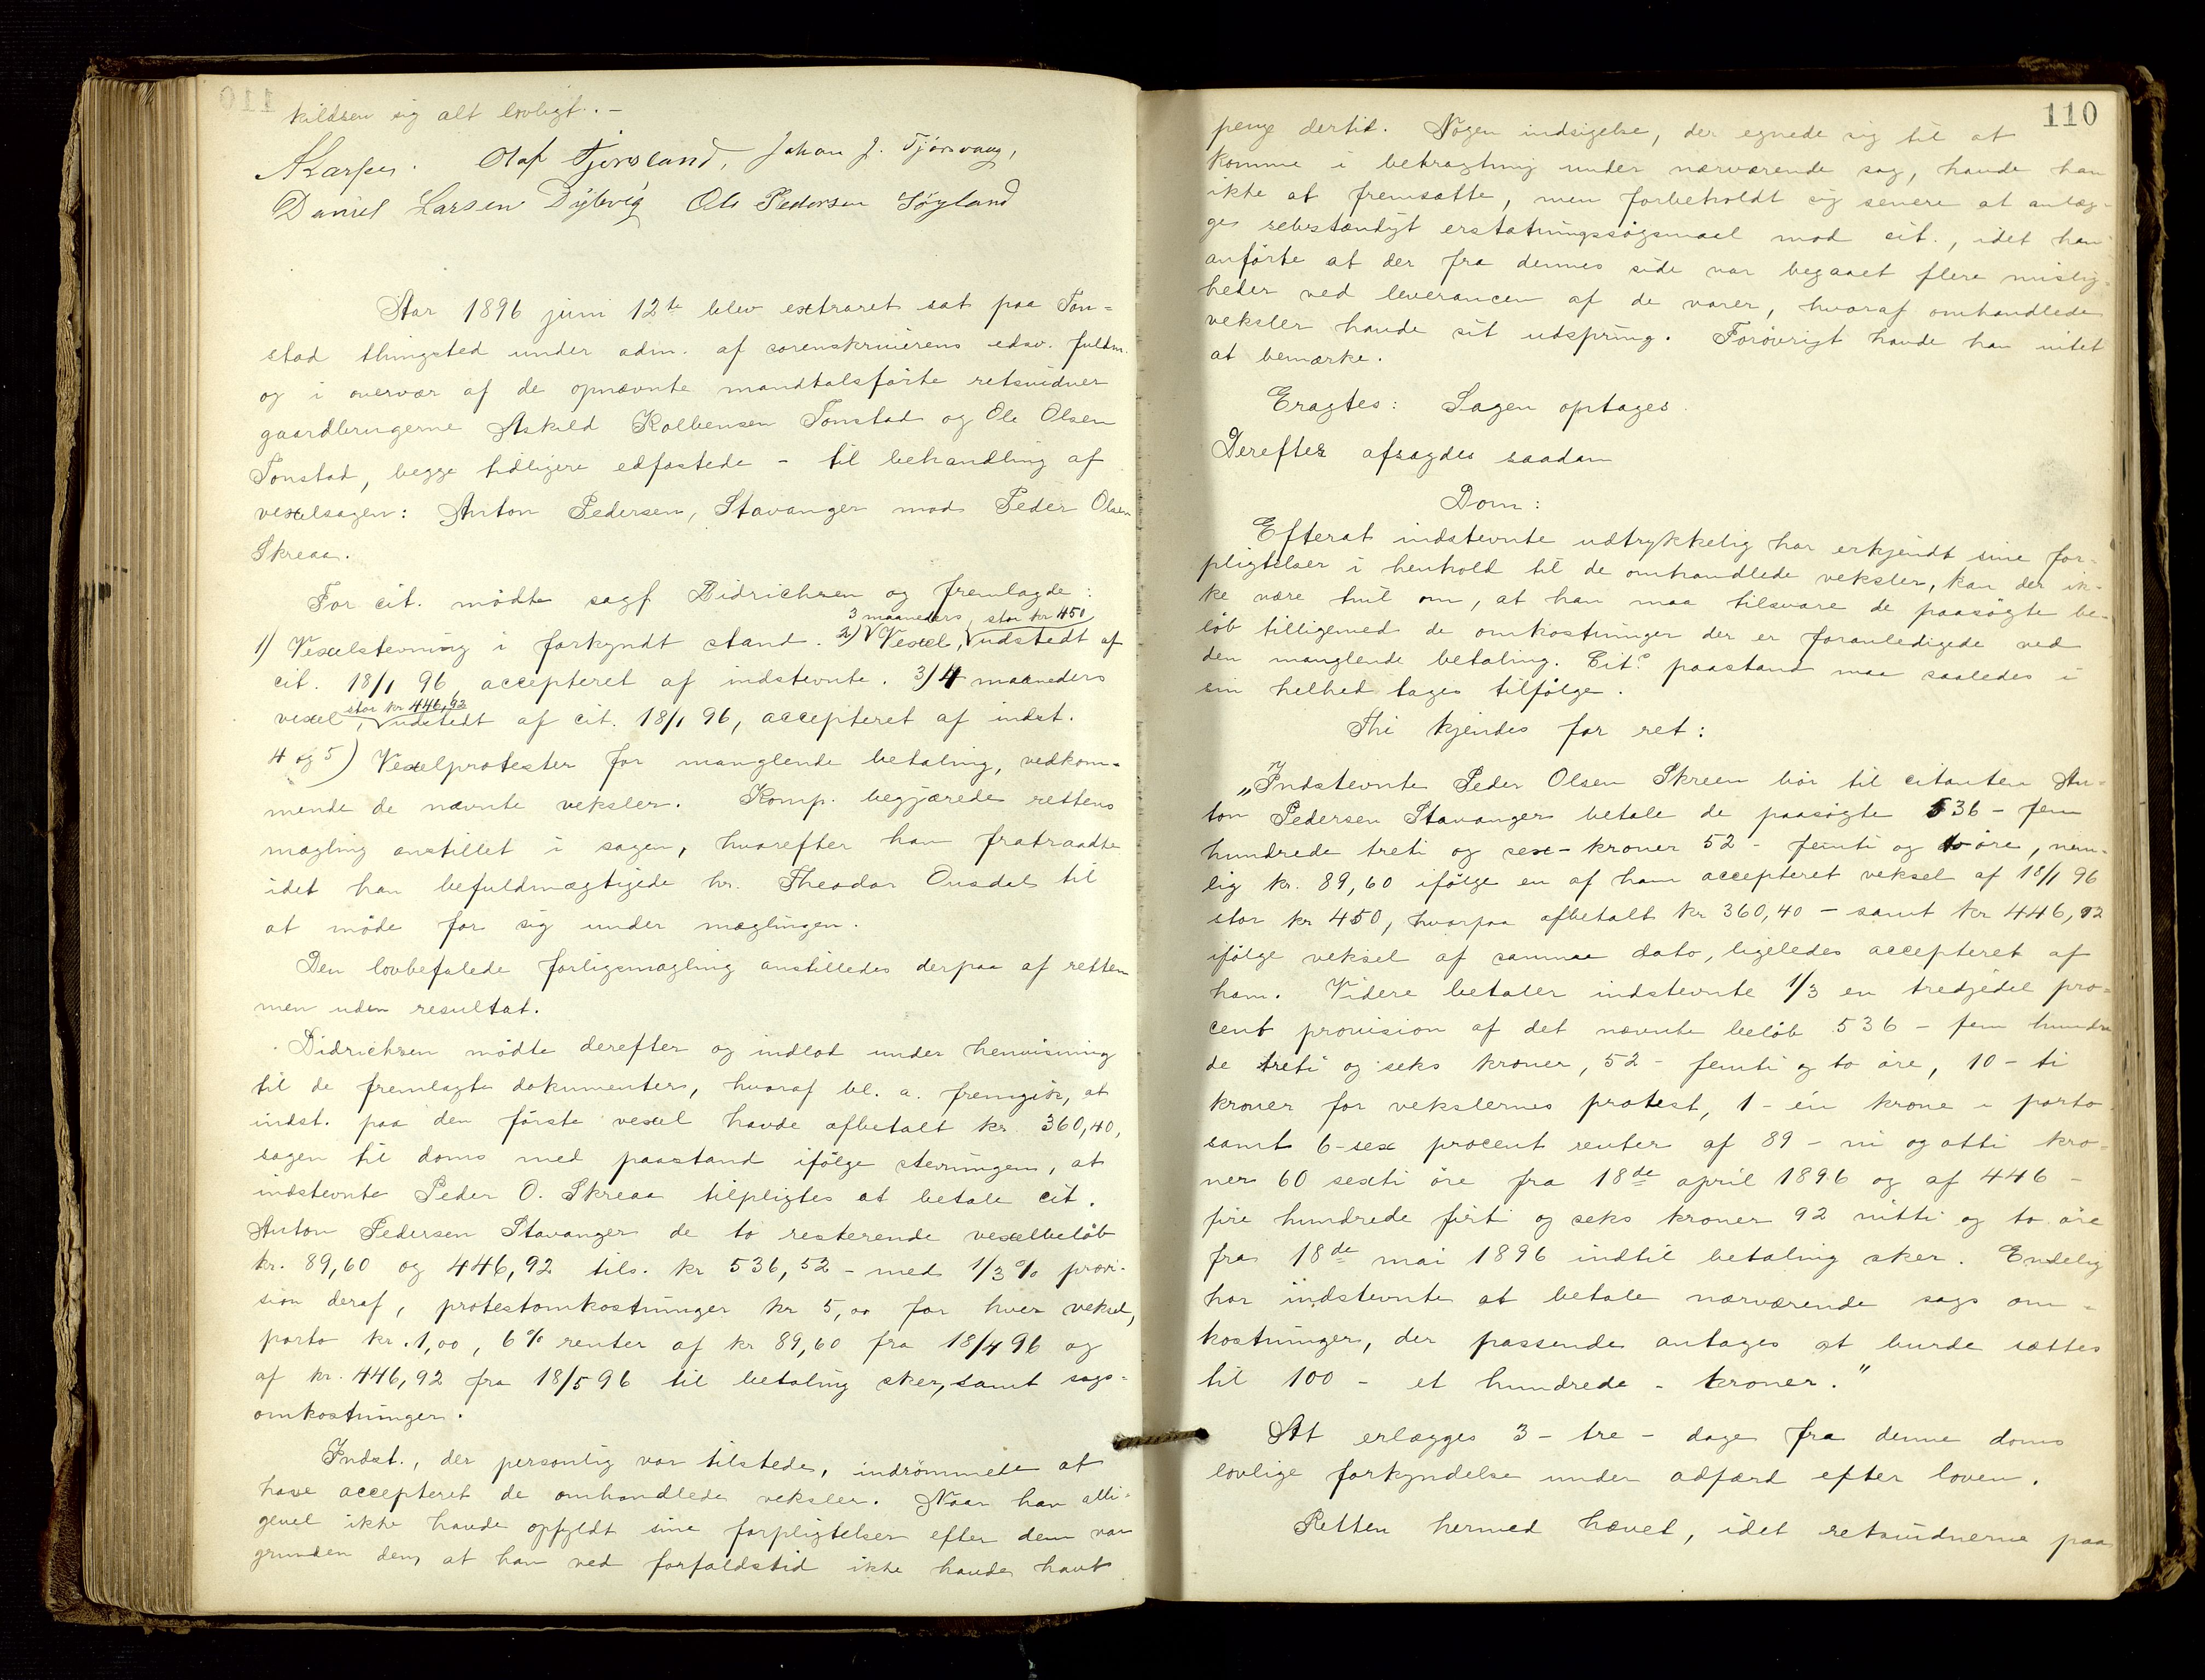 kildren sig alt lovligt. -
Olaf Tjorsland, Johan J. Tjörsvaag,
Daniel Larsen Dybvig Ole Pedersen Söyland
Aar 1896 juni 12te blev extraret sat paa Ton=
stad thingsted under adm. af sorenskriverens edsv. fuldm.
og i overvær af de opnævnte mandtalsførte retsvidner
gaardbrugerne Askild Kolbensen Tonstad og Ole Olsen
Tonstad, begge tidligere edfæstede - til behandling af
vexelsagen: Anton Pedersen, Stavanger mod Peder Olsen
Skreaa.
For cit. mödte sagf Didrichsen og fremlagde:
3 maaneders stor kr 450
1) Vexelstevning i forkyndt stand. 2) Vexel, udstedt af
cit. 18/1 96 accepteret af indstevnte. 3) 4 maaneders
stor kr 446,92
vexel, udstedt af cit. 18/1 96, accepteret af indst.
4 og 5) Vexelprotester for manglende betaling, vedkom-
mende de nævnte veksler. Komp. begjærede rettens
mægling anstillet i sagen, hvorefter han fratraadte
idet han befuldmægtigede hr. Theodor Ousdal til
at möde for sig under mæglingen.
Den lovbefalede forligsmægling anstilledes derpaa af retten
men uden resultat.
Didrichsen mödte derefter og indlod under henvisning
til de fremlagte dokumenter, hvoraf bl. a. fremgik, at
indst. paa den förste vexel havde afbetalt kr. 360,40,
sagen til doms med paastand ifölge stevningen, at
indstevnte Peder O. Skreaa tilpligtes at betale cit.
Anton Pedersen Stavanger de to resterende vexelbelöb
kr. 89,60 og 446,92 tils. kr 536,52 - med 1/3 % provi-
sion deraf, protestomkostninger kr 5,00 for hver veksel,
porto kr. 1,00, 6 % renter af kr 89,60 fra 18/4 96 og
af kr. 446,92 fra 18/5 96 til betaling sker, samt sags-
omkostninger.
Indst., der personlig var tilstede, indrömmede at
have accepteret de omhandlede veksler. Naar han alli-
gevel ikke havde opfyldt sine forpligtelser efter dem var
grunden den, at han ved forfaldstid ikke havde havt
110
penge dertil. Nogen indsigelse, der egnede sig til at
komme i betragtning under nærværende sag, havde han
ikke at fremsætte, men forbeholdt sig senere at anlæg-
ge selvstændigt erstatningssögsmaal mod cit., idet han
anförte at der fra dennes side var begaaet flere mislig-
heder ved leverancen af de varer, hvoraf omhandlede
veksler havde sit udspring. Foröverigt havde han intet
at bemærke.
Eragtes: Sagen optages.
Derefter afsagdes saadan
Dom:
Efterat indstevnte udtrykkelig har erkjendt sine for-
pligtelser i henhold til de omhandlede veksler, kan der ik-
ke være tvil om, at han maa tilsvare de paasögte be-
löb tilligemed de omkostninger der er foranledigede ved
den manglende betaling. Cits paastand maa saaledes i
sin helhed tages tilfölge.
Thi kjendes for ret:
„Indstevnte Peder Olsen Skreen bör til citanten An-
ton Pedersen Stavanger betale de paasögte 536 - fem
hundrede treti og sex - kroner 52 - femti og to öre, nem-
lig kr. 89,60 ifölge en af ham accepteret veksel af 18/1 96
stor kr 450, hvorpaa afbetalt kr 360,40 - samt kr 446,92
ifölge veksel af samme dato, ligeledes accepteret af
ham. Videre betaler indstevnte 1/3 en tredjedel pro-
cent provision af det nævnte belöb 536 - fem hundre
de treti og seks kroner, 52 - femti og to öre, 10 - ti
kroner for vekslernes protest, 1 - én krone i porto
samt 6 - sex procent renter af 89 - ni og otti kro-
ner 60 sexti öre fra 18de april 1896 og af 446 -
fire hundrede firti og seks kroner 92 nitti og to öre
fra 18de mai 1896 indtil betaling sker. Endelig
har indstevnte at betale nærværende sags om-
kostninger, der passende antages at burde sættes
til 100 - et hundrede - kroner."
At erlægges 3 - tre - dage fra denne doms
lovlige forkyndelse under adfærd efter loven.
Retten hermed hævet, idet retsvidnerne paa